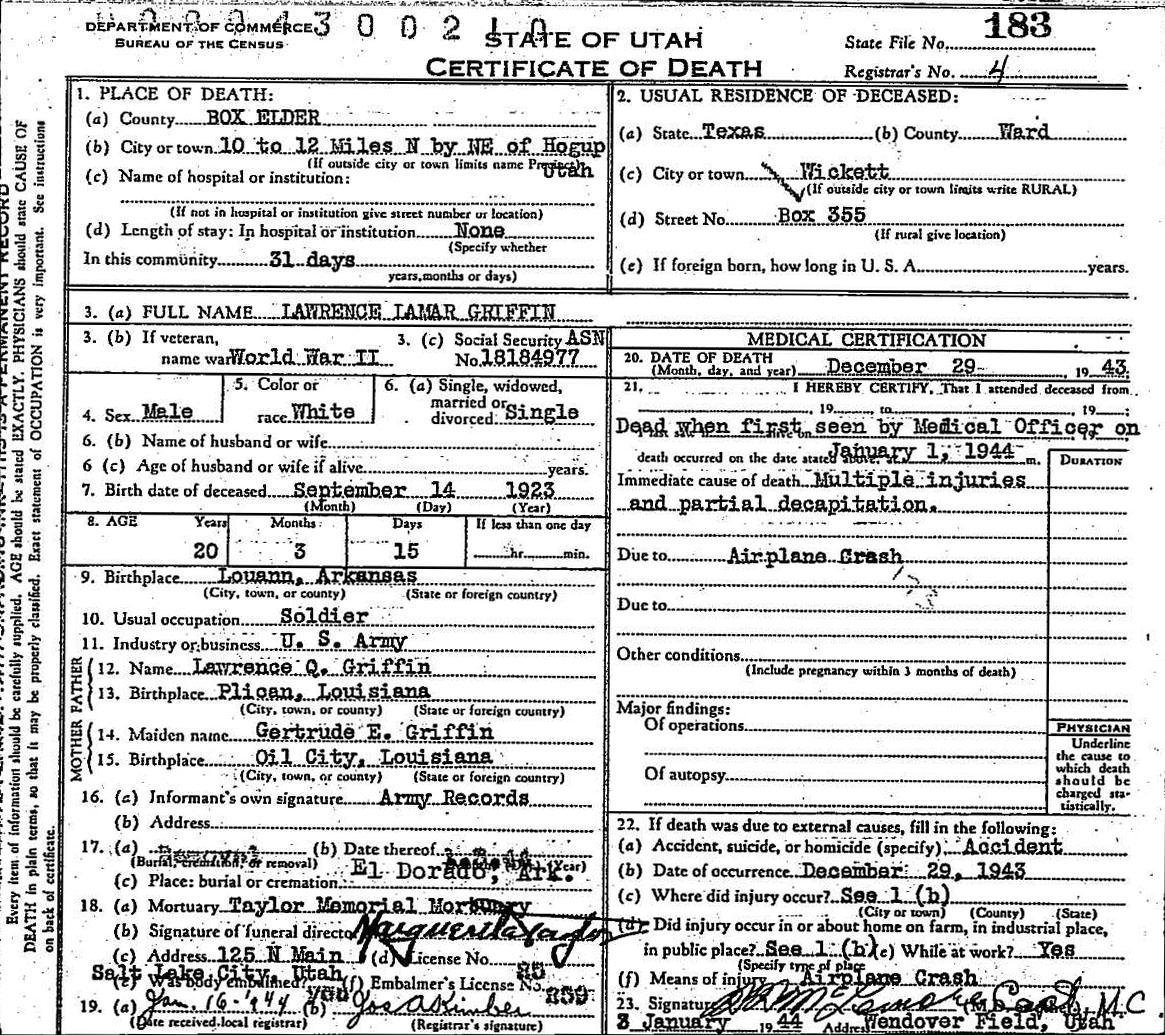 DEPARTMENT OF COMMERCE
BUREAU OF THE CENSUS
3 0 0 2 1 0
STATE OF UTAH
CERTIFICATE OF DEATH
State File No. 183
Registrar's No. 4
Every item of information should be carefully supplied. AGE should be stated EXACTLY. PHYSICIANS should state CAUSE OF
DEATH in plain terms, so that it may be properly classified. Exact statement of OCCUPATION is very important. See instructions
on back of certificate.
1. PLACE OF DEATH:
(a) County BOX ELDER
(b) City or town 10 to 12 Miles N by NE of Hogup
(If outside city or town limits name Precinct) Utah
(c) Name of hospital or institution:
(If not in hospital or institution give street number or location)
(d) Length of stay: In hospital or institution None
(Specify whether
In this community 31 days
years, months or days)
2. USUAL RESIDENCE OF DECEASED:
(a) State Texas (b) County Ward
(c) City or town Wickett
(If outside city or town limits write RURAL)
(d) Street No. Box 355
(If rural give location)
(e) If foreign born, how long in U. S. A. years.
3. (a) FULL NAME LAWRENCE LAMAR GRIFFIN
3. (b) If veteran, 3. (c) Social Security ASN
name war World War II No. 18184977
5. Color or 6. (a) Single, widowed,
married or
4. Sex Male race White divorced Single
6. (b) Name of husband or wife
6 (c) Age of husband or wife if alive years.
7. Birth date of deceased September 14 1923
(Month) (Day) (Year)
8. AGE Years Months Days If less than one day
20 3 15 hr. min.
9. Birthplace Louann, Arkansas
(City, town, or county) (State or foreign country)
10. Usual occupation Soldier
11. Industry or business U. S. Army
FATHER
12. Name Lawrence Q. Griffin
13. Birthplace Plican, Louisiana
(City, town, or county) (State or foreign country)
MOTHER
14. Maiden name Gertrude E. Griffin
15. Birthplace Oil City, Louisiana
(City, town, or county) (State or foreign country)
16. (a) Informant's own signature Army Records
(b) Address
17. (a) (b) Date thereof
(Burial, cremation, or removal)
(c) Place: burial or cremation El Dorado, Ark.
18. (a) Mortuary Taylor Memorial Mortuary
(b) Signature of funeral director Marguerite Taylor
(c) Address 125 N Main (d) License No. 85
Salt Lake City, Utah
(e) Was body embalmed? yes (f) Embalmer's License No. 359
19. (a) Jan. 16-1944 (b) Jos A Kimber
(Date received local registrar) (Registrar's signature)
MEDICAL CERTIFICATION
20. DATE OF DEATH
(Month, day, and year) December 29 19 43
21. I HEREBY CERTIFY, That I attended deceased from
, 19 , to , 19 ;
Dead when first seen by Medical Officer on
death occurred on the date stated above, at January 1, 1944 m.
DURATION
Immediate cause of death Multiple injuries
and partial decapitation.
Due to Airplane Crash
Due to
Other conditions
(Include pregnancy within 3 months of death)
Major findings:
Of operations
Of autopsy
PHYSICIAN
Underline
the cause to
which death
should be
charged sta-
tistically.
22. If death was due to external causes, fill in the following:
(a) Accident, suicide, or homicide (specify) Accident
(b) Date of occurrence December 29, 1943
(c) Where did injury occur? See 1 (b)
(City or town) (County) (State)
(d) Did injury occur in or about home on farm, in industrial place,
in public place? See 1 (b) (e) While at work? Yes
(Specify type of place
(f) Means of injury Airplane Crash
23. Signature Capt, M.C
3 January 19 44 Address Wendover Field, Utah